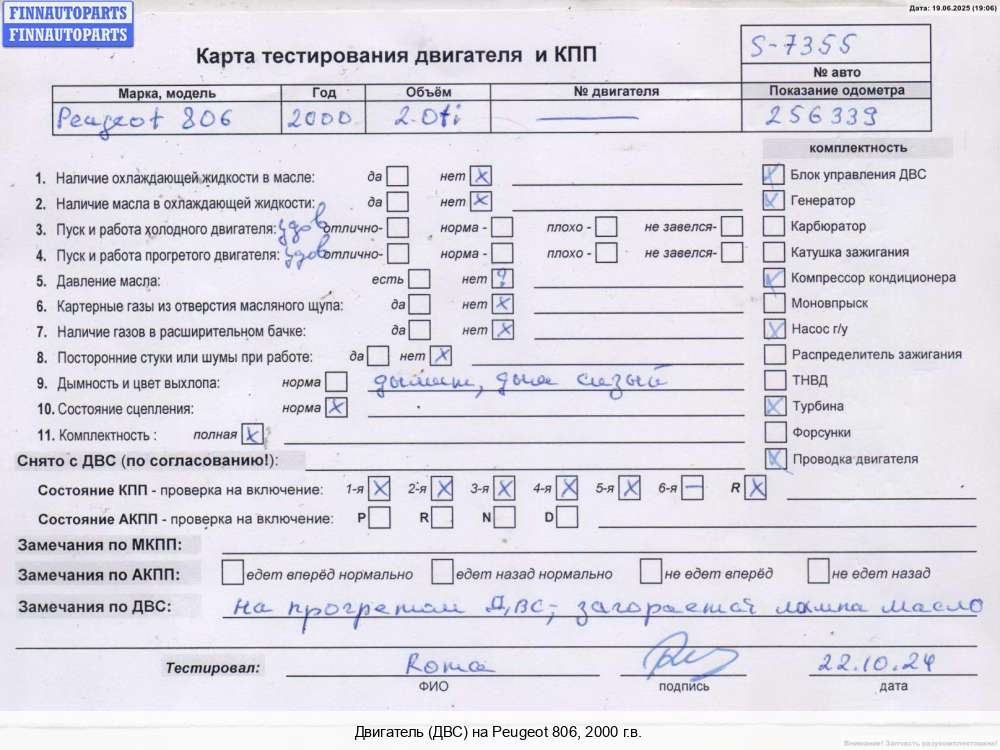 FINNAUTOPARTS
FINNAUTOPARTS
Дата: 19.06.2025 (19:06)
Карта тестирования двигателя и КПП
S-7355
№ авто
Марка, модель Год Объём № двигателя Показание одометра
Peugeot 806 2000 2.0ti — 256339
комплектность
1. Наличие охлаждающей жидкости в масле: да нет X
Блок управления ДВС
2. Наличие масла в охлаждающей жидкости: да нет X
Генератор
3. Пуск и работа холодного двигателя: удов отлично- норма - плохо - не завелся-
Карбюратор
4. Пуск и работа прогретого двигателя: удов отлично- норма - плохо - не завелся-
Катушка зажигания
5. Давление масла: есть нет ?
Компрессор кондиционера
6. Картерные газы из отверстия масляного щупа: да нет X
Моновпрыск
7. Наличие газов в расширительном бачке: да нет X
Насос г/у
8. Посторонние стуки или шумы при работе: да нет X
Распределитель зажигания
9. Дымность и цвет выхлопа: норма дымит, дым сизый
ТНВД
10. Состояние сцепления: норма X
Турбина
11. Комплектность : полная X
Форсунки
Снято с ДВС (по согласованию!):
Проводка двигателя
Состояние КПП - проверка на включение: 1-я X 2-я X 3-я X 4-я X 5-я X 6-я — R X
Состояние АКПП - проверка на включение: P R N D
Замечания по МКПП:
Замечания по АКПП: едет вперёд нормально едет назад нормально не едет вперёд не едет назад
Замечания по ДВС: на прогретом ДВС, загорается лампа масло
Тестировал: Roma 22.10.24
ФИО подпись дата
Двигатель (ДВС) на Peugeot 806, 2000 г.в.
Внимание! Запчасть разукомплектована!